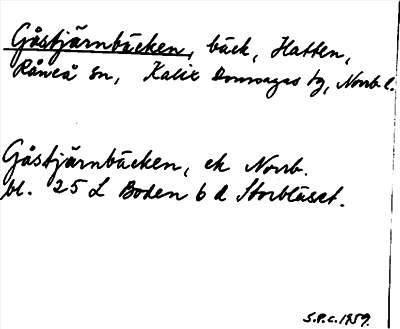 Gåstjärnbäcken, bäck, Hatten,
Råneå sn, Kalix Domsagas tg, Norrb. l.
Gåstjärnbäcken, ek Norrb.
bl. 25 L Boden 6 d Storbläset.
S.P.C. 1959.